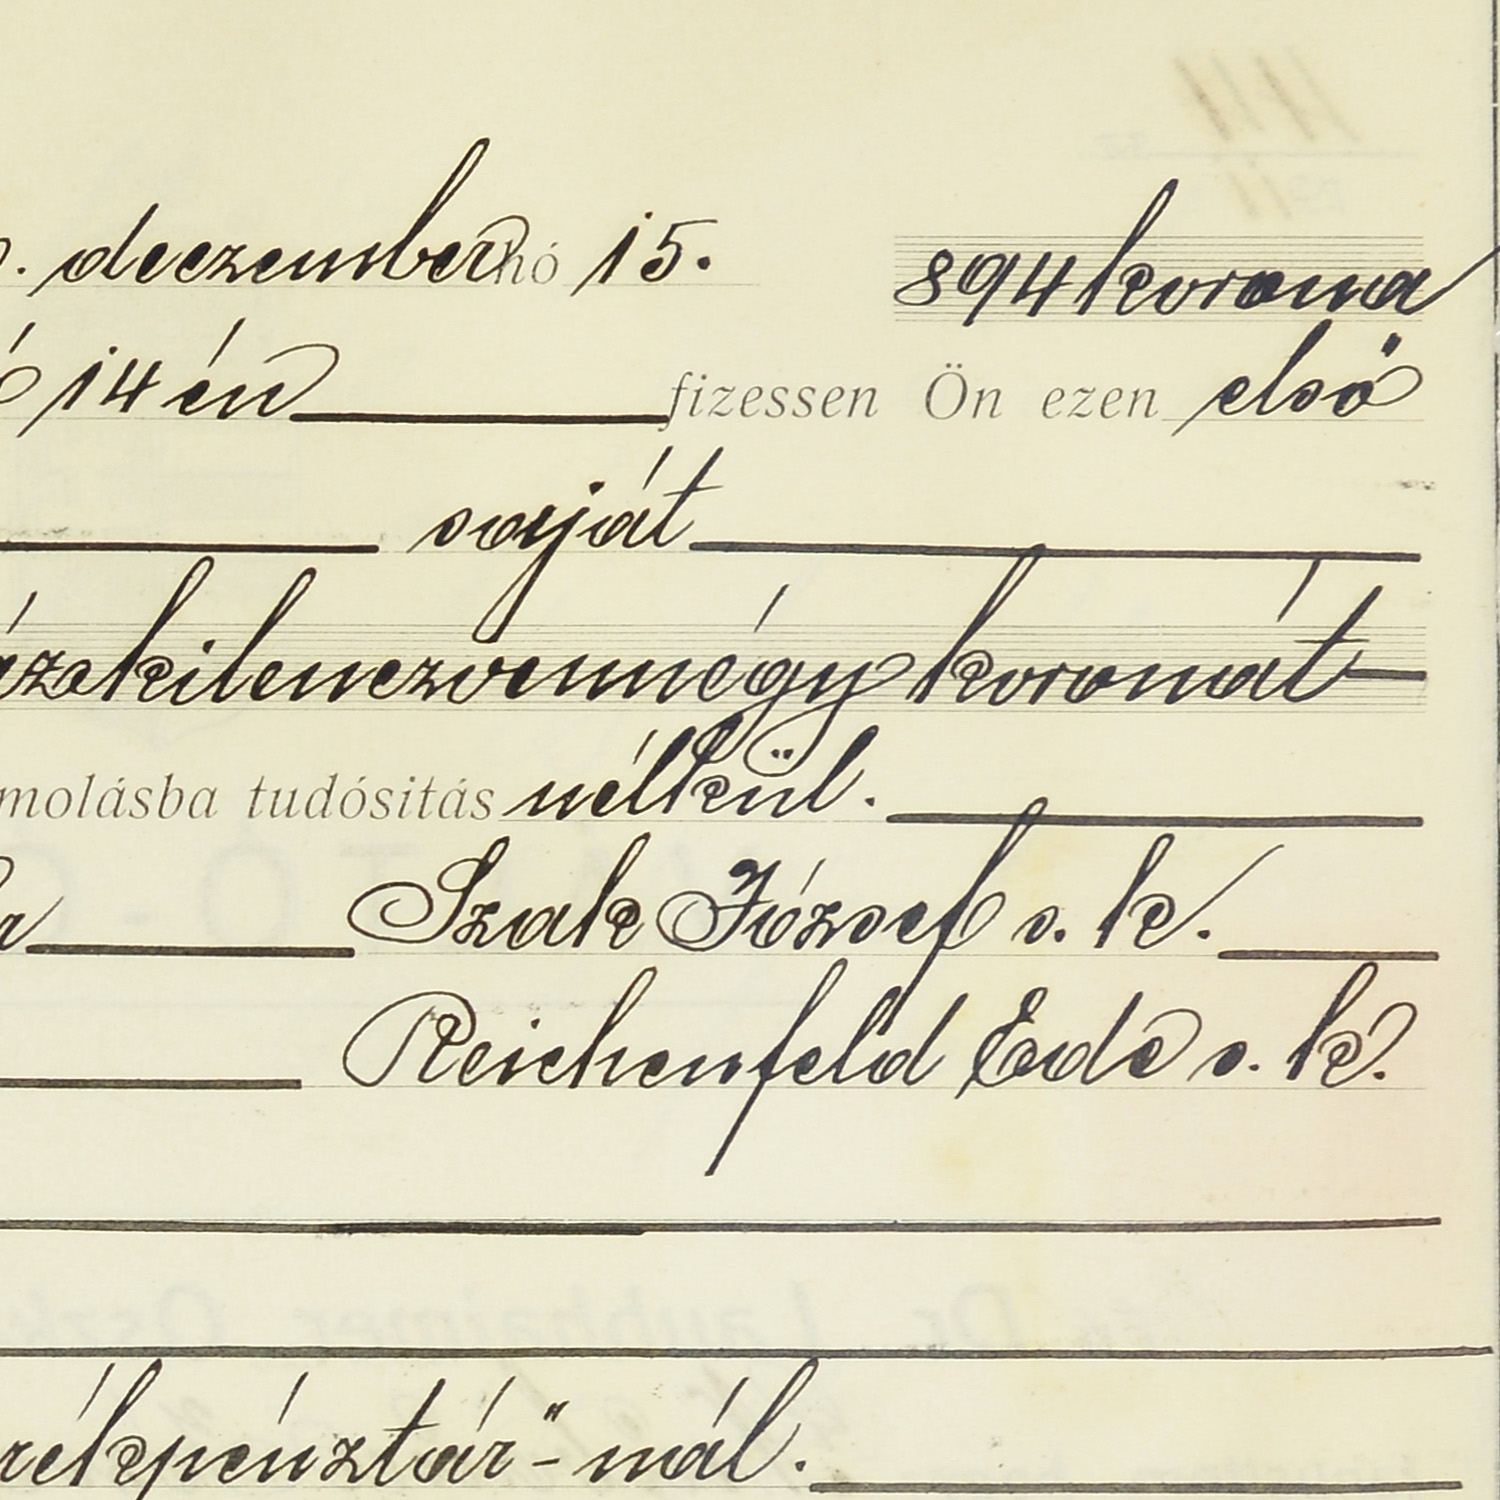 . deczember hó 15. 894 korona
14 én fizessen Ön ezen első
saját
ázekilenczvennégy koronát
molásba tudósitás nélkül.
Szak József s. k.
Reichenfeld Ede s. k.
rékpénztár"-nál.